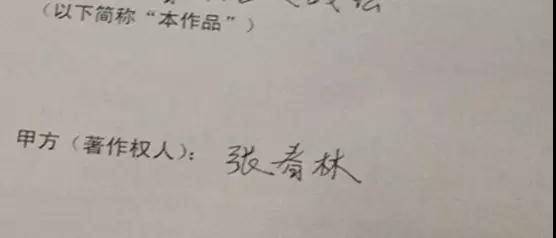 (以下简称“本作品”)
甲方(著作权人): 张春林